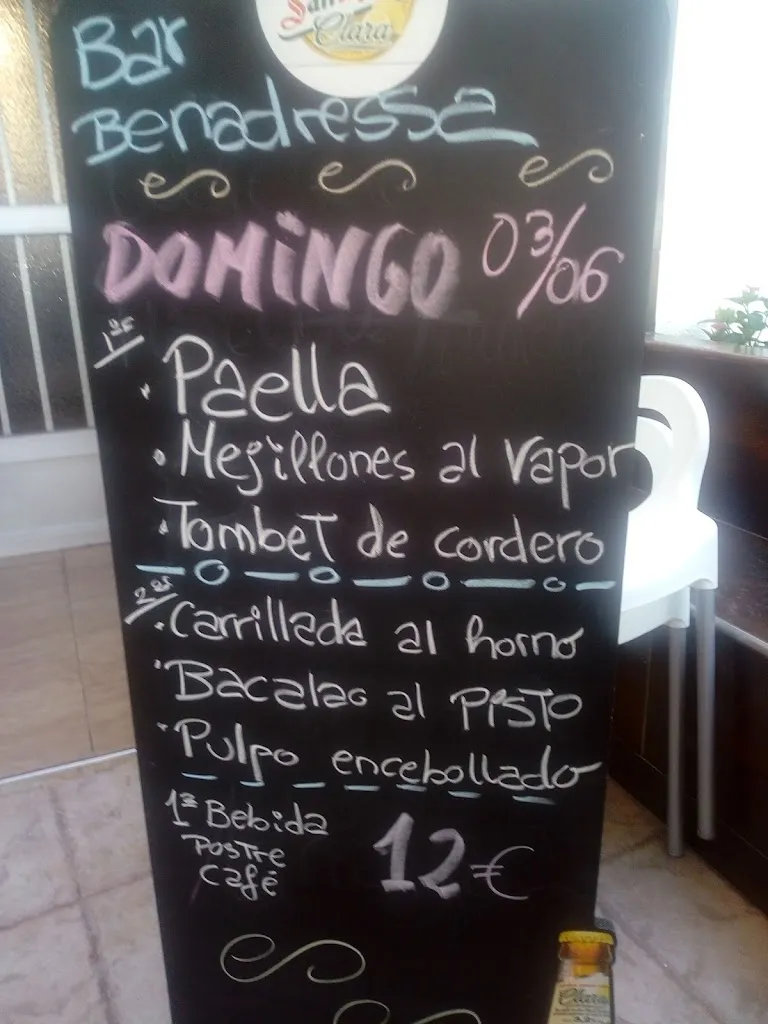 Clara
Bar
Benadressa
DOMiNGO 03/06
1ºs
Paella
Mejillones al vapor
Tombet de cordero
2ºs
Carrillada al horno
Bacalao al pisto
Pulpo encebollado
1ª Bebida
Postre
Café
12€
Clara